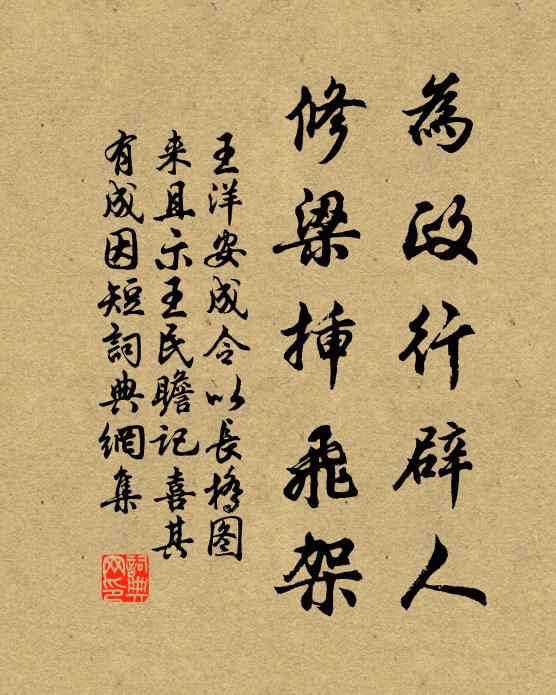 為政行辟人
修梁挿飛架
王洋安成令以長橋图
来且示王民瞻记喜其
有成因短詞典網集
詞典网印